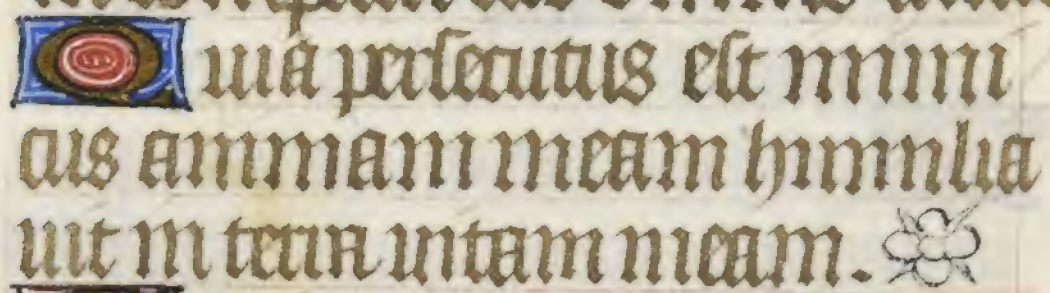 Quia persecutus est inimi
cus animam meam humilia
uit in terra uitam meam.